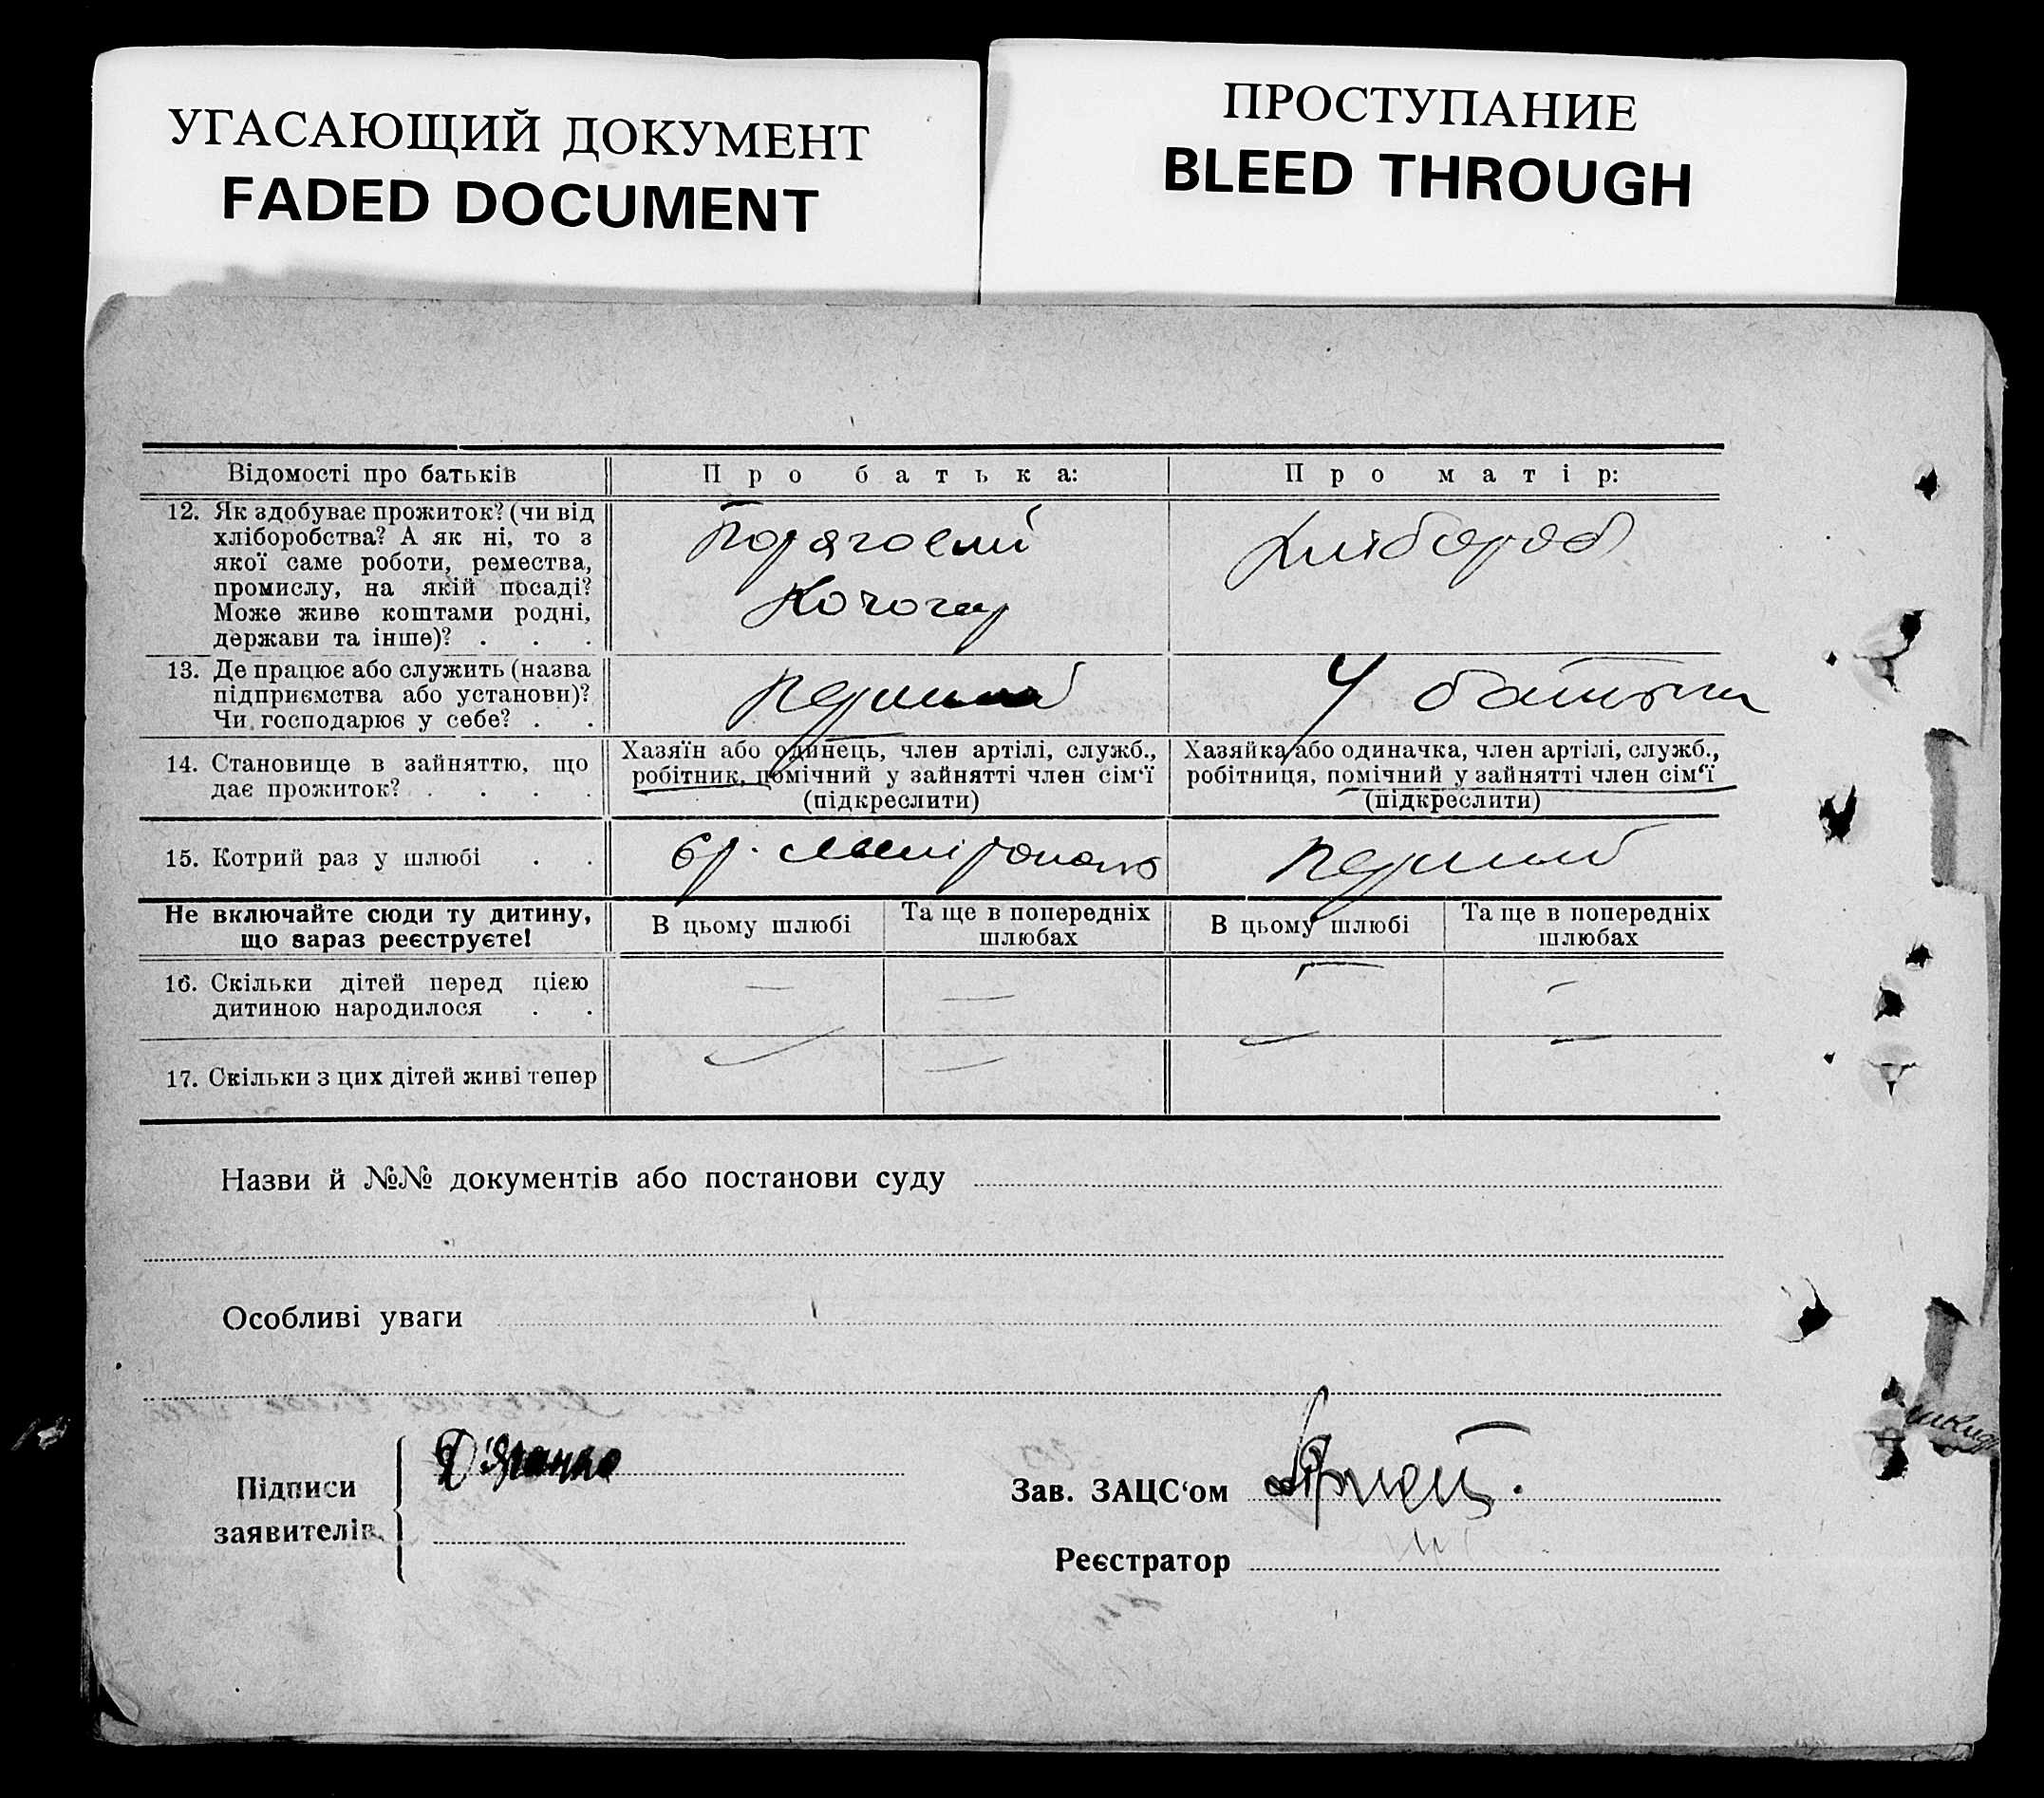 УГАСАЮЩИЙ ДОКУМЕНТ
FADED DOCUMENT
ПРОСТУПАНИЕ
BLEED THROUGH
Відомості про батьків
Про батька:
Про матір:
12. Як здобуває прожиток? (чи від
хліборобства? А як ні, то з
якої саме роботи, ремества,
промислу, на якій посаді?
Може живе коштами родні,
держави та інше)? . . .
Кочогар
Хлібороб
13. Де працює або служить (назва
підприємства або установи)?
Чи господарює у себе? . .
перший
У батька
14. Становище в зайняттю, що
дає прожиток? . . . .
Хазяїн або одинець, член артілі, служб.,
робітник, помічний у зайнятті член сім'ї
(підкреслити)
Хазяйка або одиначка, член артілі, служб.,
робітниця, помічний у зайнятті член сім'ї
(підкреслити)
15. Котрий раз у шлюбі . .
перший
Не включайте сюди ту дитину,
що зараз реєструєте!
В цьому шлюбі
Та ще в попередніх
шлюбах
В цьому шлюбі
Та ще в попередніх
шлюбах
16. Скільки дітей перед цією
дитиною народилося . .
— — — —
17. Скільки з цих дітей живі тепер
— — — —
Назви й №№ документів або постанови суду
Особливі уваги
Підписи
заявителів
Зав. ЗАЦС'ом
Реєстратор